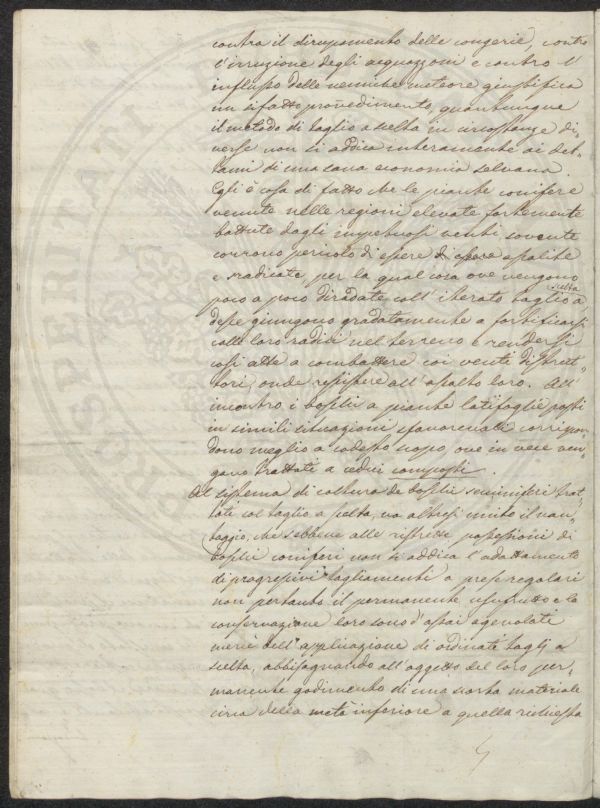 contra il dirupamento delle congerie, contro
l'irruzione degli acquazzoni e contro l'
influsso delle nemiche meteore giustifica
un sifatto provedimento, quantunque
il metodo di taglio a scelta in circostanze di-
verse non si addica interamente ai det-
tami di una sana economia selvana.
Egli è cosa di fatto che le piante conifere
venute nelle regioni elevate fortemente
battute dagli impetuosi venti sovente
corrono pericolo di essere di essere assalite
e sradicate per la qual cosa ove vengono
poco a poco diradate coll'iterato taglio a scelta
desse giungono gradatamente a fortificarsi
colle loro radici nel terreno e rendersi
così atte a combattere coi venti distrut-
tori, onde resistere all'assalto loro. All'
incontro i boschi a piante latifoglie posti
in simili situazioni sfavorevoli corrispon-
dono meglio a codesto scopo, ove in vece ven-
gano trattati a cedui composti.
Al sistema di coltura de boschi seminiferi trat-
tati col taglio a scelta, va altresì unito il van-
taggio, che sebbene alle ristrette possessioni di
boschi coniferi non si addica l'adattamento
di progressivi tagliamenti a prese regolari
non pertanto il permanente usufrutto e la
conservazione loro sono d'assai agevolati
mercè dell'applicazione di ordinati taglj a
scelta, abbisognando all'oggetto del loro per-
manente godimento di una scorta materiale
circa della metà inferiore a quella richiesta